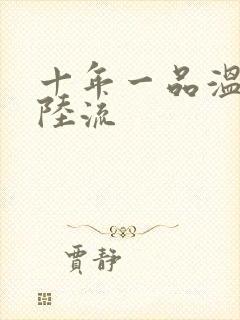 十年一品温
陸流
賈静